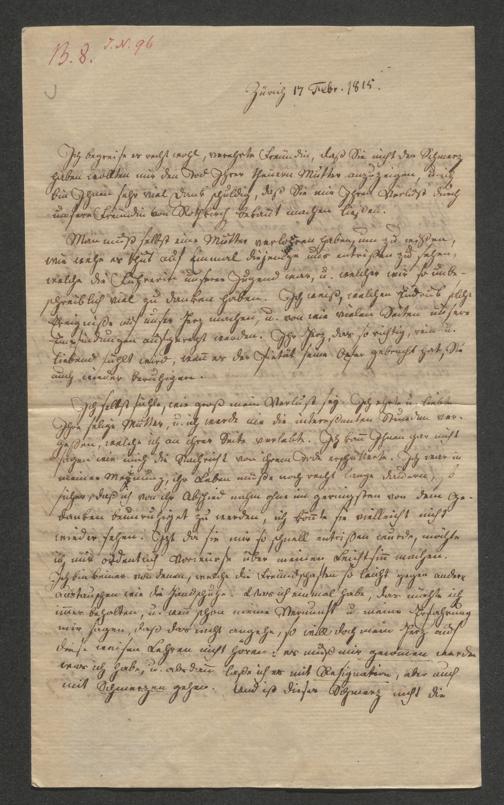 B. 8. J. N. 96
Zürich 17 Febr. 1815.
Ich begreife es recht wohl, verehrte Freündin, daß Sie nicht den Schmerz
haben wollten mir den Tod Ihrer theuern Mutter anzuzeigen. Doch
bin Ihnen sehr viel Dank schuldig, daß Sie mir Ihren Verlust durch
unsere Freundin von bekannt machen ließen.
Man muß selbst eine Mutter verlohren haben, um zu wissen,
wie wehe es thut auf einmal diejenige uns entrissen zu sehen,
welche die Führerin unserer Jugend war, u. welcher wir so unbe-
schreiblich viel zu danken haben. Ich weiß, welchen Eindruk solche
Ereigniße auf unser Herz machen, u. von wie vielen Seiten unsere
Empfindungen aufgereitzt werden. Ihr Herz, das so richtig, rein u.
liebend fühlt wird, wenn es der Pietät seine Opfer gebracht hat, Sie
auch wieder beruhigen.
Ich selbst fühle, wie groß mein Verlust sey. Ich ehrte u. liebte
Ihre selige Mutter, u. ich werde nie die interessanten Stunden ver-
geßen, welche ich an ihrer Seite verlebte. Ich kann Ihnen gar nicht
sagen wie mich die Nachricht von ihrem Tode erschütterte. Ich war in
meiner Meynung, ihr Leben müße noch recht lange dauern, so
sicher, daß ich von ihr Abschied nahm ohne im geringsten von dem Ge-
danken beunruhiget zu werden, ich könnte sie vielleicht nicht
wieder sehen. Jezt da sie mir so schnell entrissen wurde, möchte
ich mir ordentlich Vorwürfe über meinen Leichtsinn machen.
Ich bin keiner von denen, welche die Freundschaften so leicht gegen andere
austauschen wie die Handschuhe. Was ich einmal habe, das möchte ich
immer behalten, u. wenn schon meine Vernunft u. meine Erfahrung
mir sagen, daß das nicht angehe, so will doch mein Herz auf
diese weisen Lehren nicht hören: es muß mir genommen werden
was ich habe, u. alsdann laße ich es mit Resignation, aber auch
mit Schmerzen gehen. Und ist dieser Schmerz nicht die